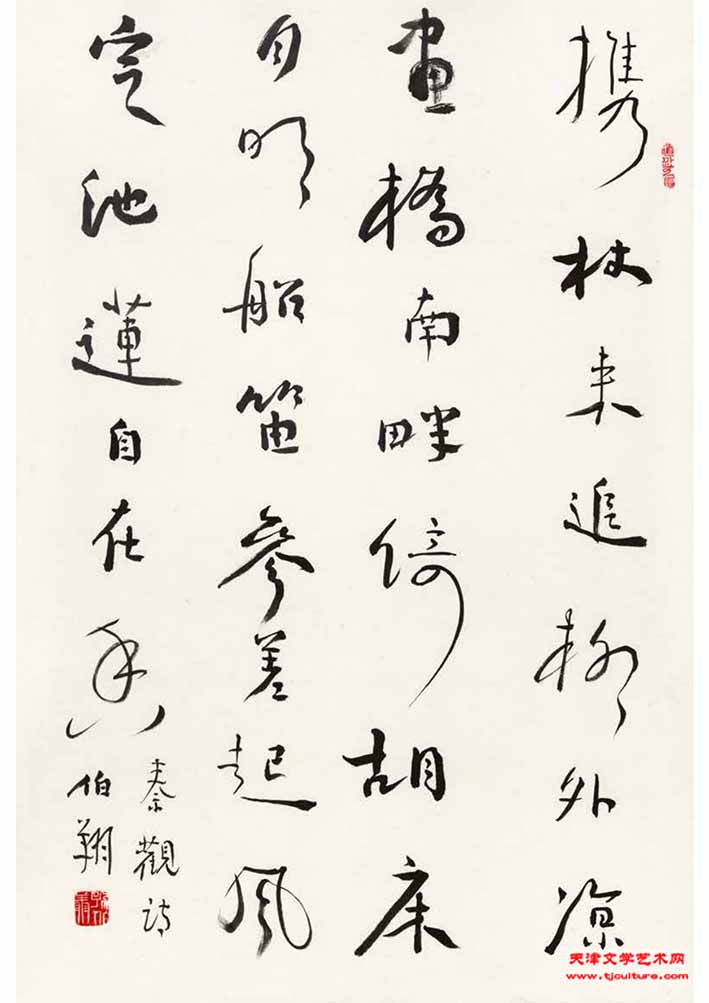 携杖来追柳外凉
畫橋南畔倚胡床
月明船笛參差起風
定池蓮自在香
秦觀詩
伯翔
天津文学艺术网
www.tjculture.com